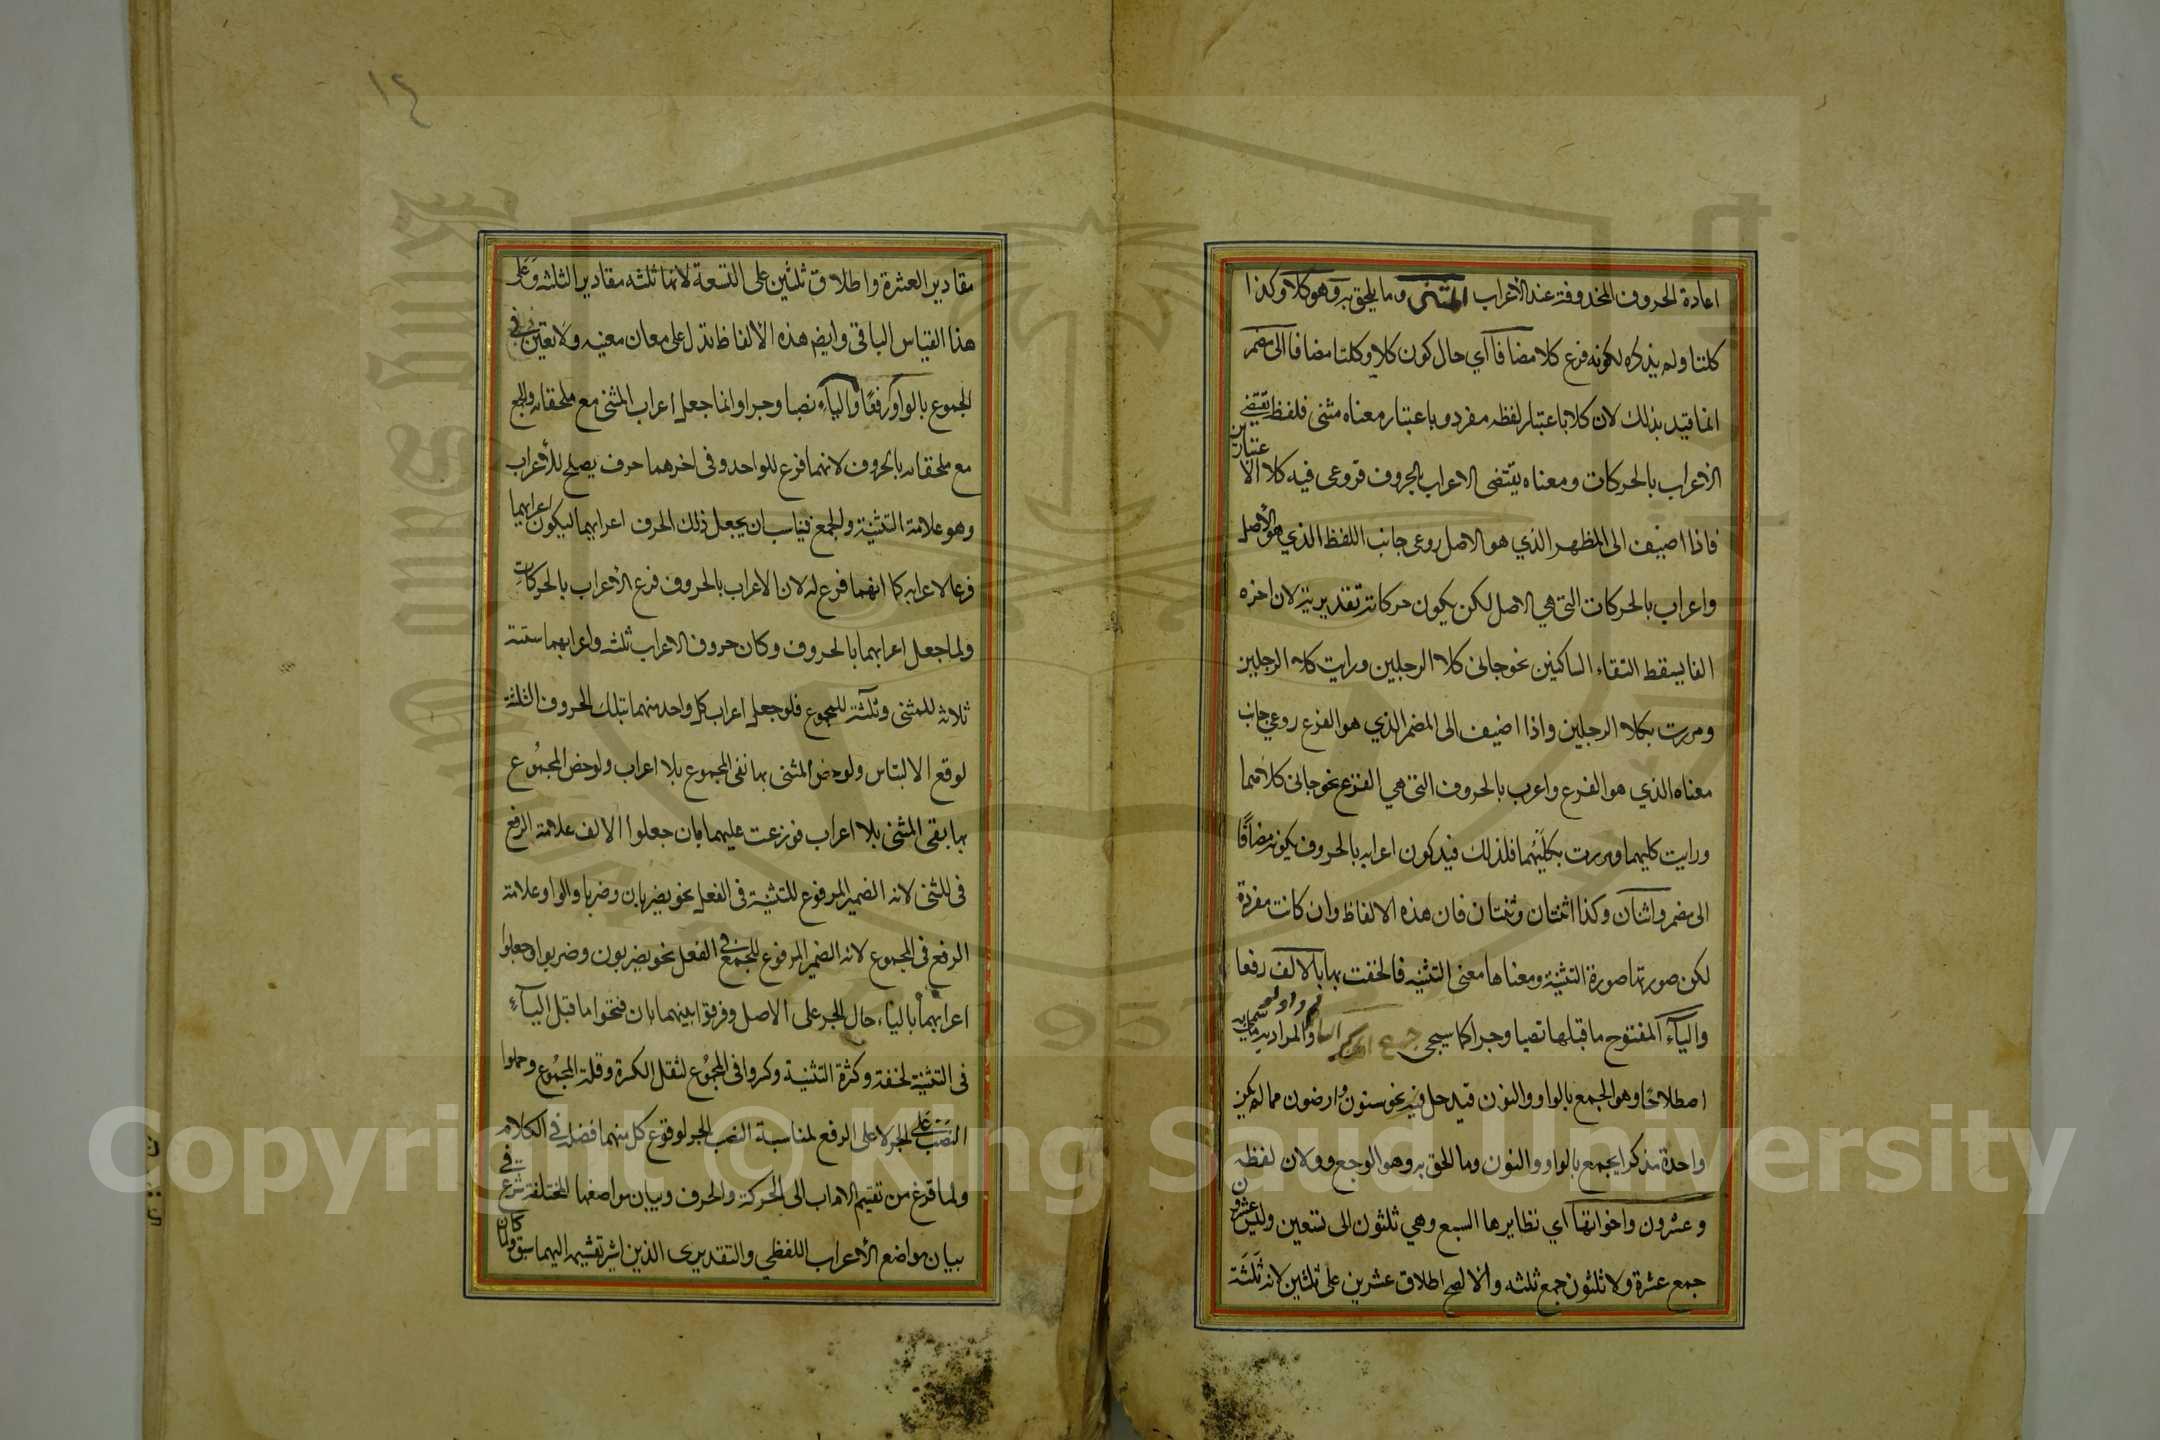 اعادة الحروف المحذوفة عند الاعراب المثنى وما يلحق به وهو كلا وكذا
كلتا ولم يذكره لكونه فرع كلا مضافا اي حال كون كلا وكلتا مضافا الى مضمر
انما قيد بذلك لان كلا باعتبار لفظه مفرد وباعتبار معناه مثنى فلفظه يقتضي
الاعراب بالحركات ومعناه يقتضى الاعراب بالحروف فروعى فيه كلا الاعتبارين
فاذا اضيف الى المظهر الذي هو الاصل روعى جانب اللفظ الذي هو الاصل
واعراب بالحركات التي هي الاصل لكن يكون حركاته تقديرية لان اخره
الفا يسقط التقاء الساكنين نحو جانى كلا الرجلين ورايت كلا الرجلين
ومررت بكلا الرجلين واذا اضيف الى المضمر الذي هو الفرع روعي جانب
معناه الذي هو الفرع واعرب بالحروف التي هي الفرع نحو جانى كلاهما
ورايت كليهما ومررت بكليهما فلذلك قيد كون اعرابه بالحروف بكونه مضافا
الى مضمر واثنان وكذا اثنتان وثنتان فان هذه الالفاظ وان كانت مفردة
لكن صورتها صورة التثنية ومعناها معنى التثنيه فالحقت بها بالالف رفعا
والياء المفتوح ما قبلها نصبا وجرا كما سيجى جمع المذكر السالم والمراد به ما سمى به
اصطلاحا وهو الجمع بالواو والنون فيدخل فيه نحو سنون وارضون مما لم يكن
واحدة مذكرا يجمع بالواو والنون وما الحق به وهو الوجع وولان لفظه
وعشرون واخواتها اي نظايرها السبع وهي ثلثون الى تسعين وليس عشرون
جمع عشرة ولا ثلثون جمع ثلثه والا لصح اطلاق عشرين على ثلثين لانه ثلثة
١٤
مقادير العشرة واطلاق ثلثين على التسعة لانها ثلثه مقادير الثلثه وعلى
هذا القياس الباقي وايضه هذه الالفاظ تدل على معان معينه ولا تعين في
الجموع بالواو رفعا والياء نصبا وجرا وانما جعل اعراب المثنى مع ملحقاته والجمع
مع ملحقاته بالحروف لانهما فرع للواحد وفى اخرهما حرف يصلح للأعراب
وهو علامة التثنية والجمع فيناسب ان يجعل ذلك الحرف اعرابهما ليكون اعرابهما
فرعا لاعرابه كما انهما فرع له لان الاعراب بالحروف فرع الاعراب بالحركات
ولما جعل اعرابهما بالحروف وكان حروف الاعراب ثلثه واعرابهما ستة
ثلاثه للمثنى وثلثة للمجموع فلو جعل اعراب كل واحد منهما بتلك الحروف الثلثة
لوقع الالبتاس ولو خص المثنى بها نفى المجموع بلا اعراب ولو خص المجموع
بها بقى المثنى بلا اعراب فوزعت عليهما بان جعلوا الالف علامة الرفع
فى المثنى لانه الضمير المرفوع للتثنية فى الفعل نحو يضربان وضربا والواو علامة
الرفع فى المجموع لانه الضمير المرفوع للجمع فى الفعل نحو يضربون وضربوا وجعلوا
اعرابهما بالياء حال الجر على الاصل وفرقوا بينهما بان فتحوا ما قبل الياء
فى التثنية لخفة وكثرة التثنية وكسروا فى المجموع لثقل الكسرة وقلة المجموع وحملوا
النصب على الجر لا على الرفع لمناسبة النصب الجر لوقوع كل منهما فضلة في الكلام
ولما فرغ من تقيم الاعراب الى الحركة والحرف وبيان مواضعها المختلفة شرع فى
بيان مواضع الأعراب اللفظي والتقديرى الذين اشير تقسيمه اليهما سبق ولما كان
Copyright © King Saud University
1957